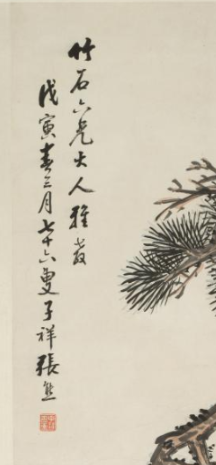 竹石六兄大人雅教
戊寅春三月七十六叟子祥張熊